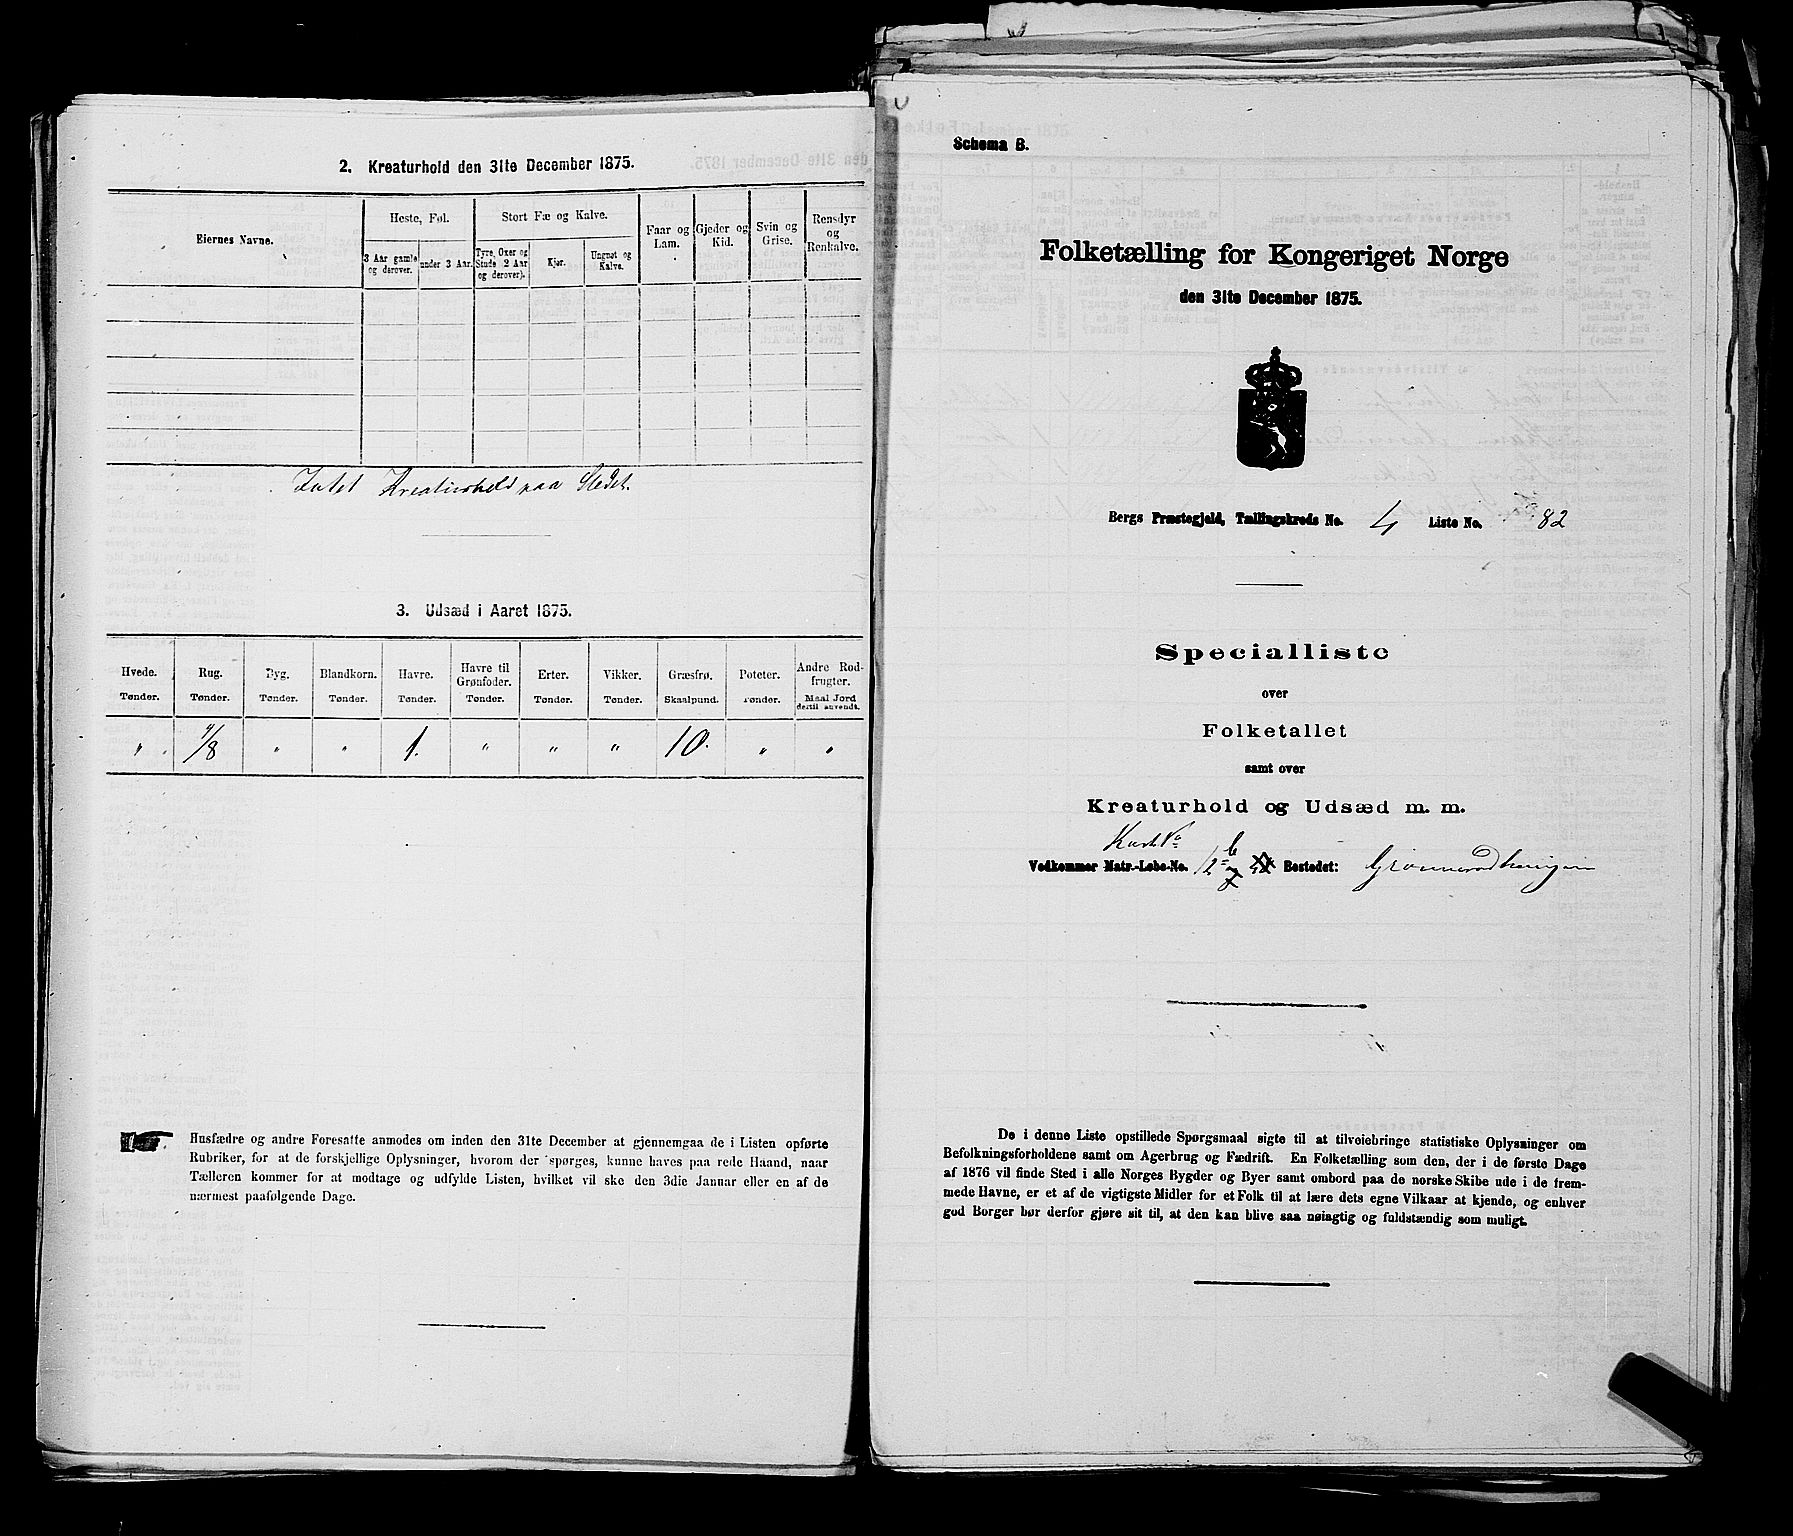 2. Kreaturhold den 31te December 1875.
Eiernes Navne.
Heste, Føl.
3 Aar gamle og derover.
under 3 Aar.
Stort Fæ og Kalve.
Tyre, Oxer og Stude 2 Aar og derover).
Kjør.
Ungnøt og Kalve.
Faar og Lam.
Gjeder og Kid.
Svin og Grise.
Rensdyr og Renkalve.
Intet Kreaturhold paa Stedet.
3. Udsæd i Aaret 1875.
Hvede. Rug. Byg. Blandkorn. Havre. Havre til Grønfoder. Erter. Vikker. Græsfrø. Poteter. Andre Rodfrugter.
Tønder. Tønder. Tønder. Tønder. Tønder. Tønder. Tønder. Tønder. Skaalpund. Tønder. Maal Jord dertil anvendt.
" 1/8 " " 1. " " " 10. " "
Husfædre og andre Foresatte anmodes om inden den 31te December at gjennemgaa de i Listen opførte
Rubriker, for at de forskjellige Oplysninger, hvorom der spørges, kunne haves paa rede Haand, naar
Tælleren kommer for at modtage og udfylde Listen, hvilket vil ske den 3die Januar eller en af de
nærmest paafølgende Dage.
Schema B.
Folketælling for Kongeriget Norge
den 31te December 1875.
Bergs Præstegjeld, Tællingskreds No. 4 Liste No. 82
Specialliste
over
Folketallet
samt over
Kreaturhold og Udsæd m. m.
Vedkommer Matr.-Løbe-No. 12 Bostedet:
De i denne Liste opstillede Spørgsmaal sigte til at tilveiebringe statistiske Oplysninger om
Befolkningsforholdene samt om Agerbrug og Fædrift. En Folketælling som den, der i de første Dage
af 1876 vil finde Sted i alle Norges Bygder og Byer samt ombord paa de norske Skibe ude i de frem-
mede Havne, er et af de vigtigste Midler for et Folk til at lære dets egne Vilkaar at kjende, og enhver
god Borger bør derfor gjøre sit til, at den kan blive saa nøiagtig og fuldstændig som muligt.